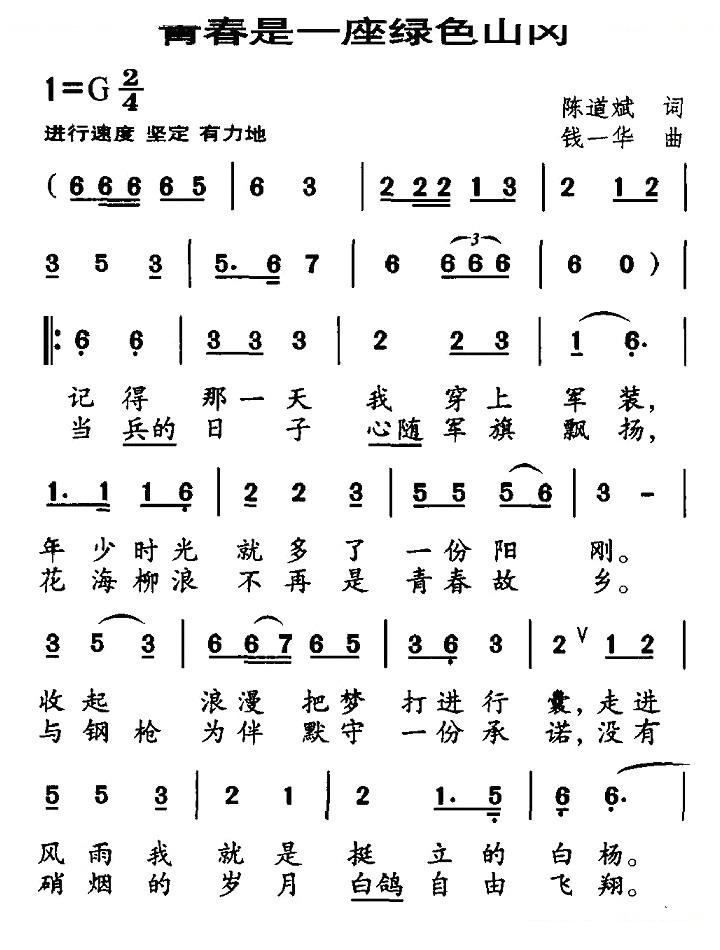 青春是一座绿色山冈
1=G 2/4
陈道斌 词
进行速度 坚定 有力地
钱一华 曲
( 6 6 6 6 5 | 6 3 | 2 2 2 1 3 | 2 1 2 |
3 5 3 | 5. 6 7 | 6 6 6 6 | 6 0 ) |
‖: 6 6 | 3 3 3 | 2 2 3 | 1 6. |
记得 那一天 我 穿上 军装,
当兵的 日子 心随军旗 飘扬,
1. 1 1 6 | 2 2 3 | 5 5 5 6 | 3 - |
年少时光 就多了 一份阳刚。
花海柳浪 不再是 青春故乡。
3 5 3 | 6 6 7 6 5 | 3 6 3 | 2 ∨ 1 2 |
收起 浪漫把梦 打进行囊,走进
与钢枪 为伴默守 一份承诺,没有
5 5 3 | 2 1 | 2 1. 5 | 6 6. |
风雨我 就是 挺立的 白杨。
硝烟的 岁月 白鸽自由 飞翔。